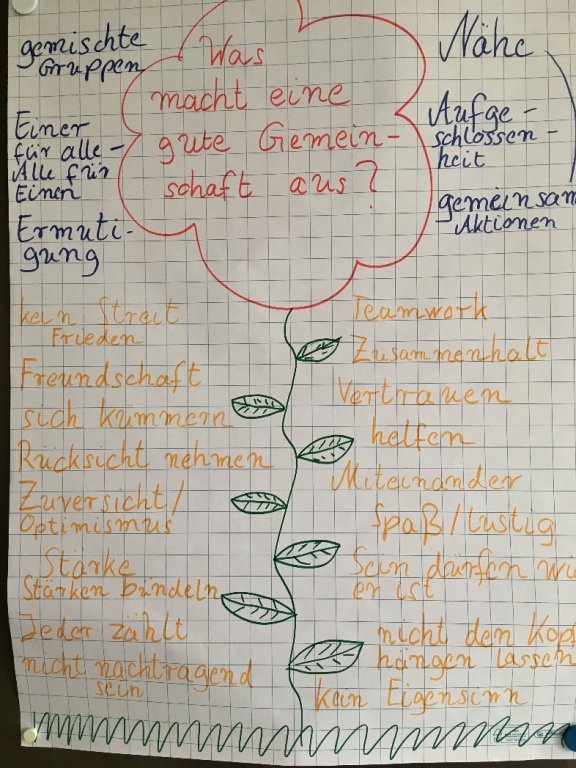 Was
macht eine
gute Gemein-
schaft aus?
gemischte
Gruppen
Einer
für alle -
Alle für
Einen
Ermuti-
gung
Nähe
Aufge-
schlossen-
heit
gemeinsam
Aktionen
kein Streit
Frieden
Freundschaft
sich kümmern
Rücksicht nehmen
Zuversicht/
Optimismus
Stärke
Stärken bündeln
Jeder zählt
nicht nachtragend
sein
Teamwork
Zusammenhalt
Vertrauen
helfen
Miteinander
Spaß/lustig
Sein dürfen wi
er ist
nicht den Kopf
hängen lassen
kein Eigensinn